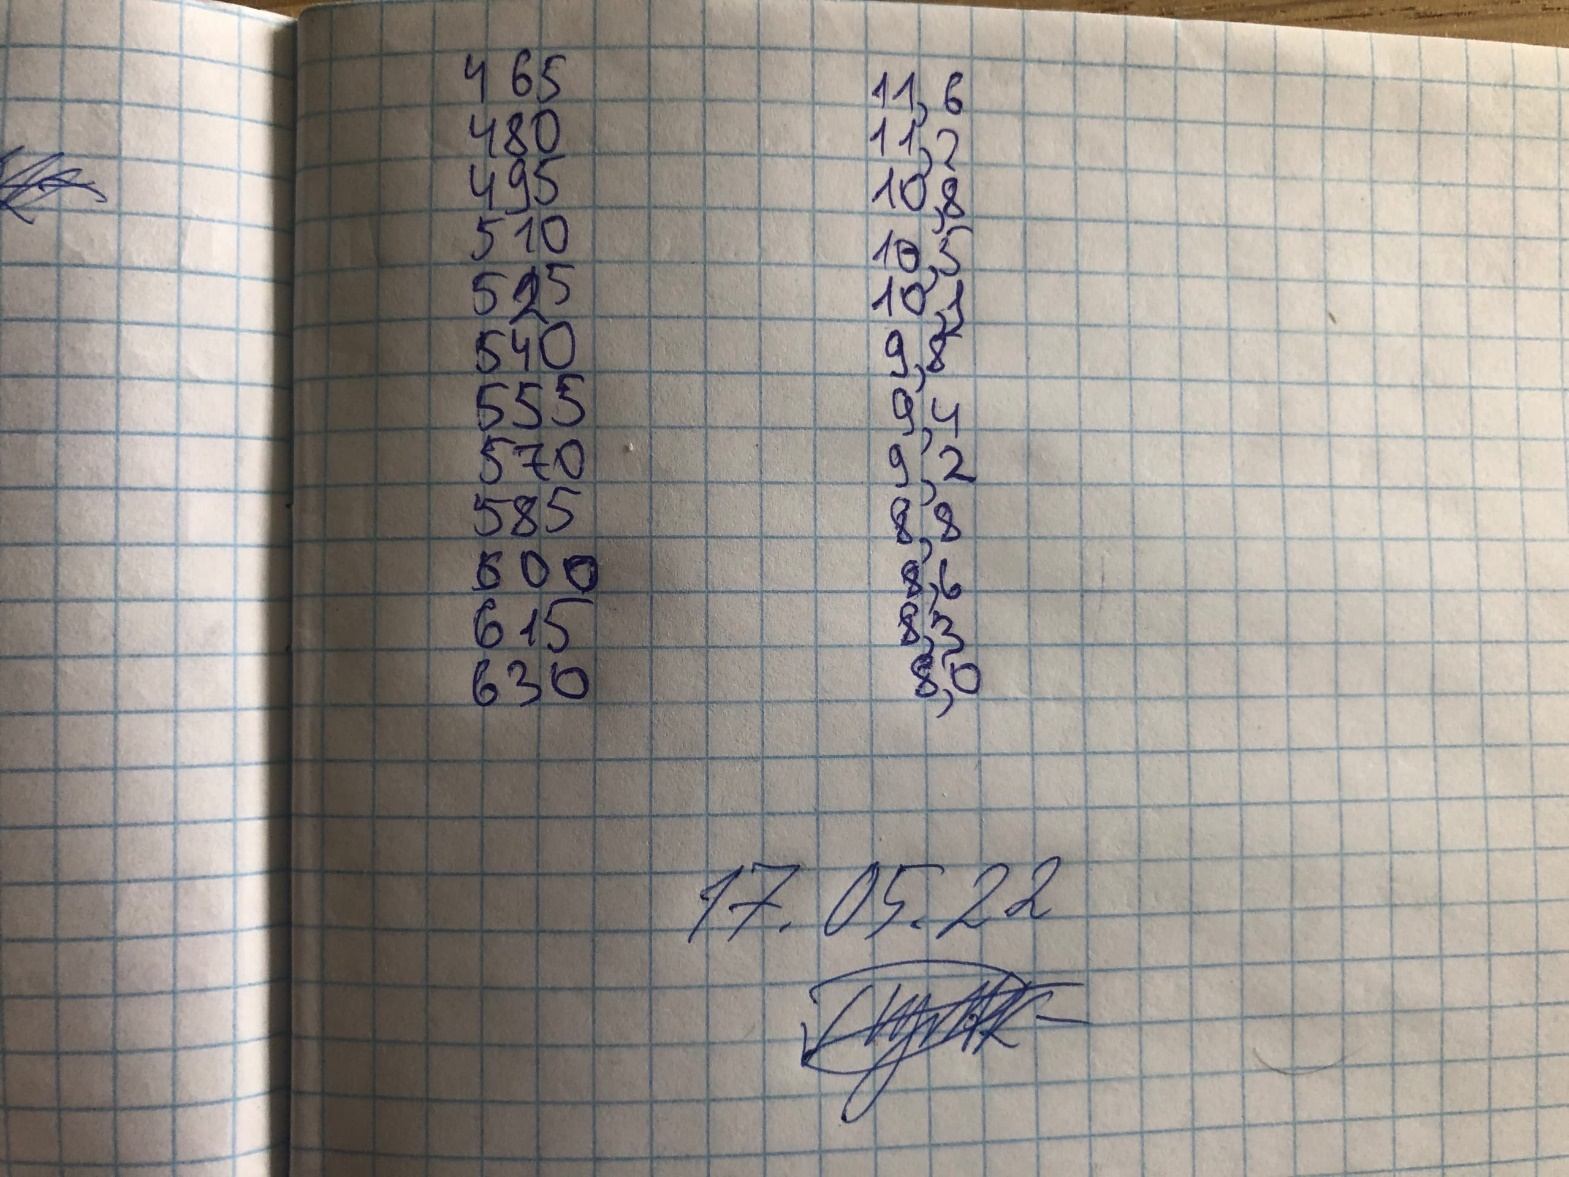 465 11,6
480 11,2
495 10,8
510 10,5
525 10,1
540 9,8
555 9,4
570 9,2
585 8,8
600 8,6
615 8,3
630 8,0
17.05.22